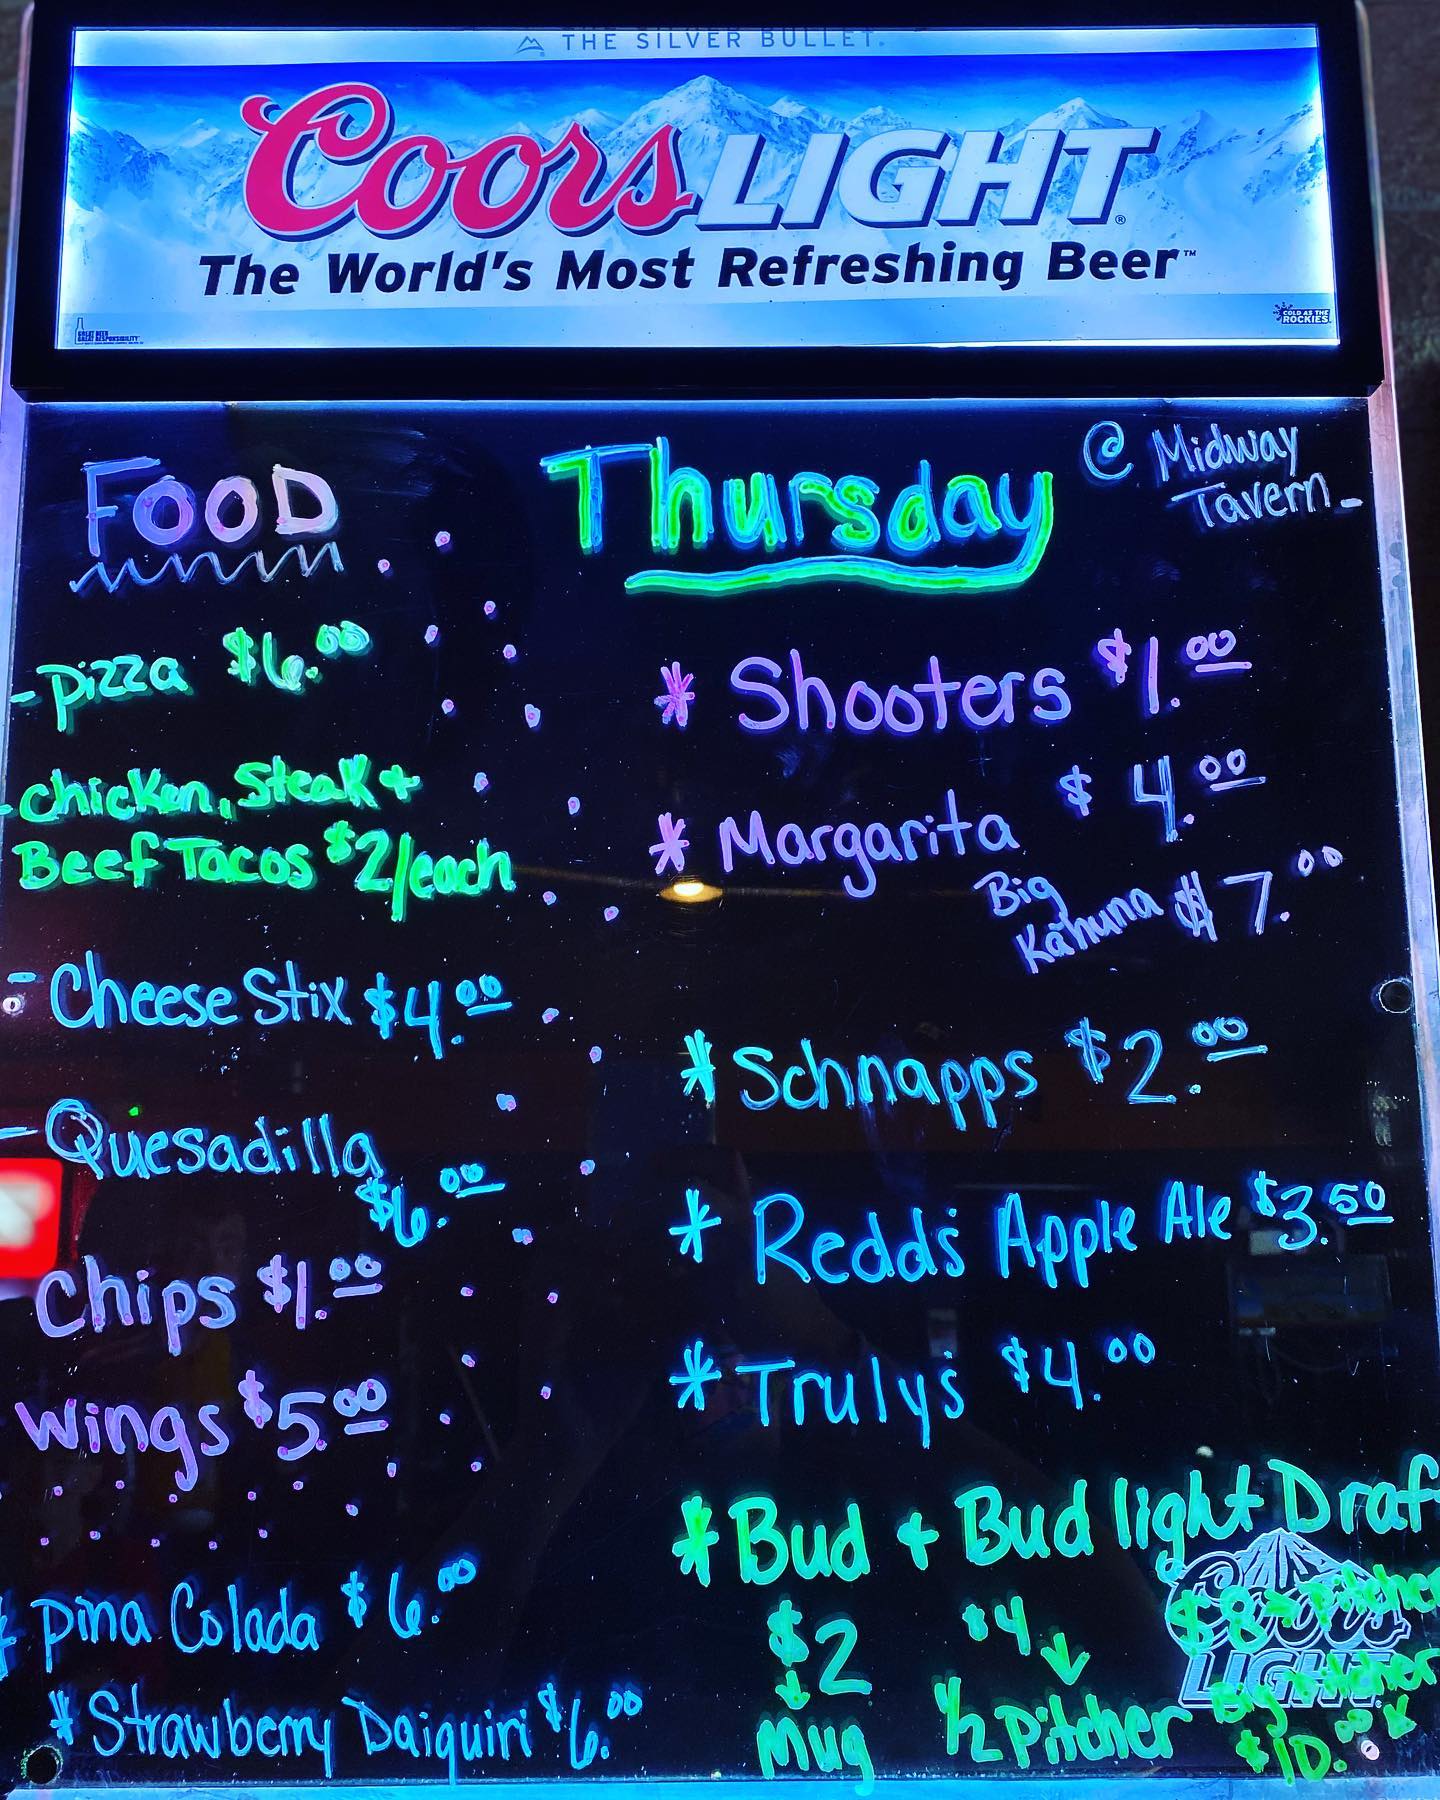 THE SILVER BULLET.
Coors LIGHT®
The World's Most Refreshing Beer™
GREAT BEER
GREAT RESPONSIBILITY
COLD AS THE
ROCKIES
FOOD
- Pizza $6.00
- Chicken, Steak +
Beef Tacos $2/each
- Cheese Stix $4.00
- Quesadilla
$6.00
Chips $1.00
Wings $5.00
* Pina Colada $6.00
* Strawberry Daiquiri $6.00
Thursday
@ Midway
Tavern -
* Shooters $1.00
* Margarita $4.00
Big
Kahuna $7.00
* Schnapps $2.00
* Redd's Apple Ale $3.50
* Truly's $4.00
* Bud + Bud light Draf
$2
Mug
$4
1/2 Pitcher
$8 Pitcher
Big Pitcher
$10.00 *
Coors
LIGHT